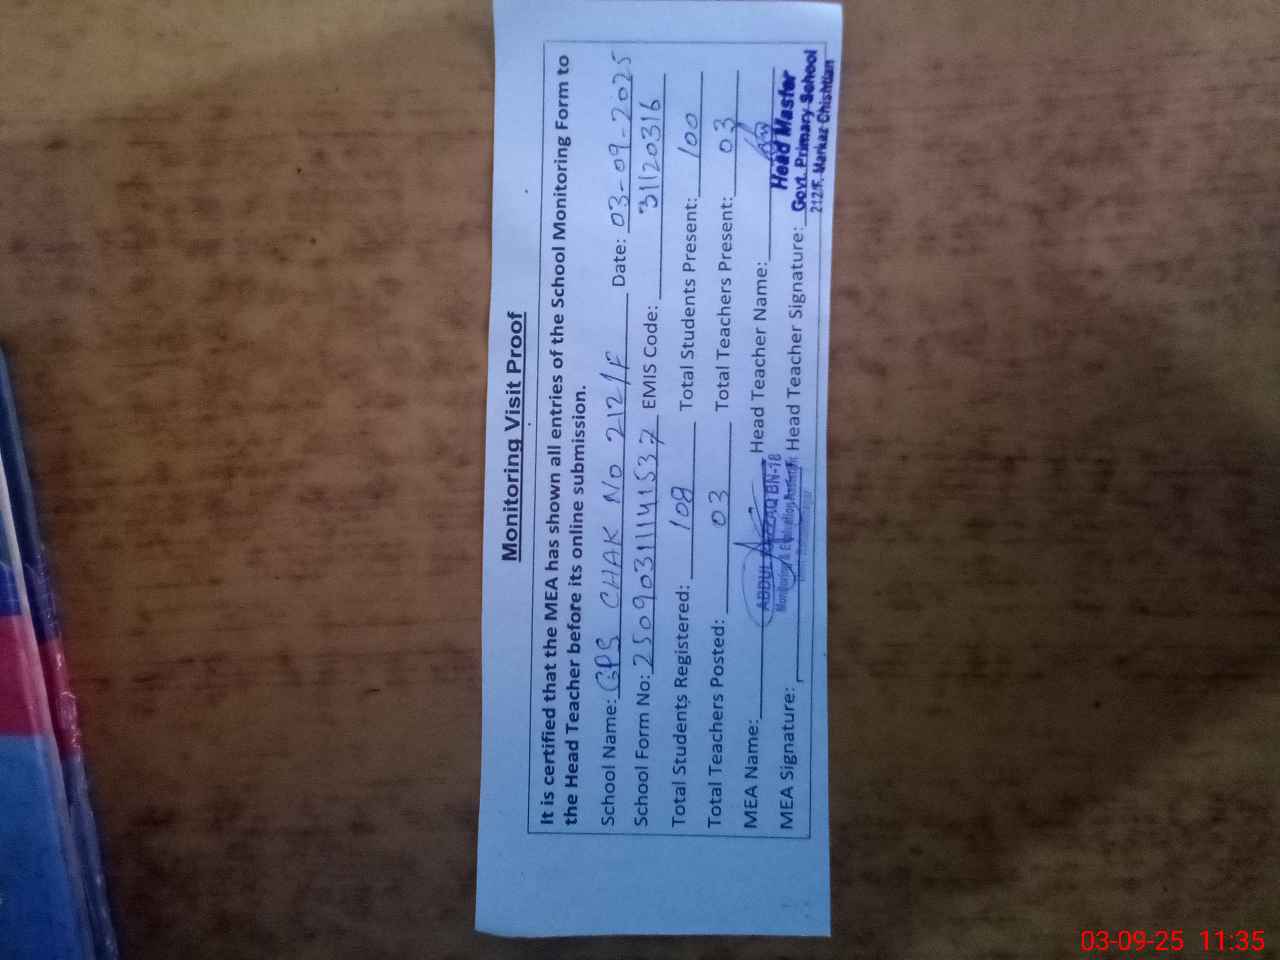 Monitoring Visit Proof
It is certified that the MEA has shown all entries of the School Monitoring Form to
the Head Teacher before its online submission.
School Name: GPS CHAK NO 212/F Date: 03-09-2025
School Form No: 25090311141537 EMIS Code: 31120316
Total Students Registered: 108 Total Students Present: 100
Total Teachers Posted: 03 Total Teachers Present: 03
MEA Name: Head Teacher Name:
ABDUL RAZZAQ BN-18
Monitoring & Evaluation Assistant
Head Master
MEA Signature: Head Teacher Signature:
Govt. Primary School
212/F. Markaz Chishtian
03-09-25 11:35